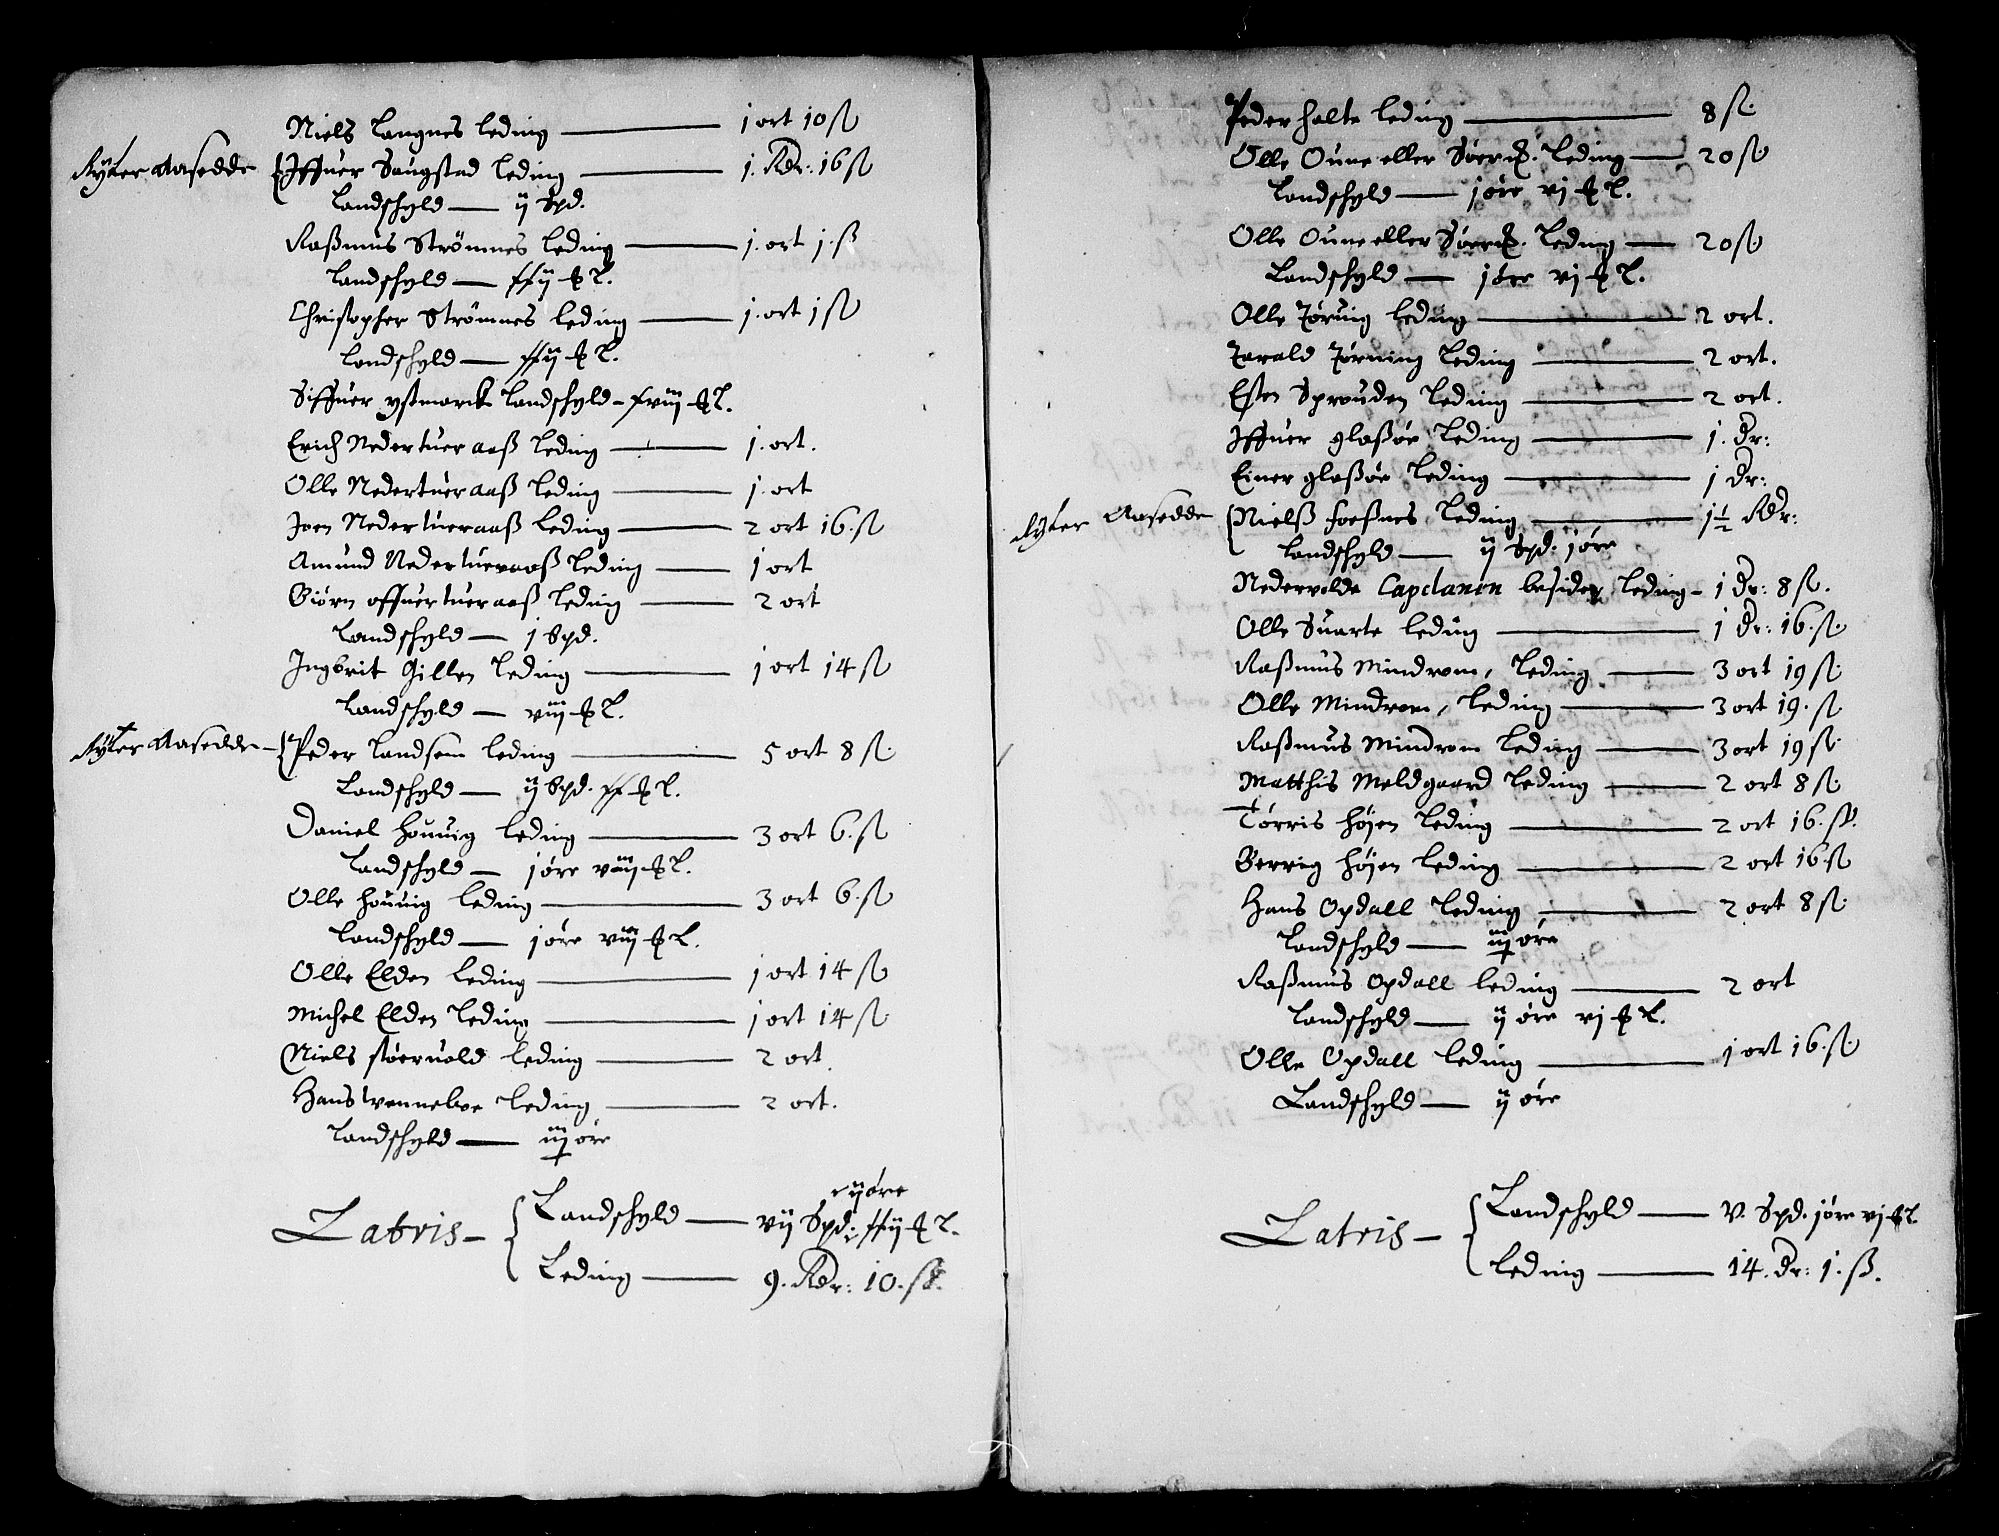 Niels Langnes Leding — 1 ort 10 ß
Rytter Aasedde { Iffuer Saugstad Leding — 1. Rdr: 16 ß
Landschyld — ij Spd.
Raßmus Strömnes Leding — 1. ort 1. ß
Landschyld —
Christopher Strömnes Leding — 1. ort 1 ß
Landschyld —
Siffuer ystmarck Landschyld –
Erich Nedertueraaß Leding — 1. ort.
Olle Nedertueraaß Leding — 1. ort
Joen Nedertueraaß Leding — 2 ort 16. ß
Amund Nedertueraaß Leding — 1 ort
Biörn offuertueraaß Leding — 2 ort
Landschyld — j Spd.
Ingbrit Gillen Leding — 1 ort 14 ß
Landschyld — viij
Rytter Aasedde – { Peder Landsem Leding — 5 ort 8 ß.
Landschyld — ij Spd.
Daniel Houuig Leding — 3 ort 6. ß
Landschyld — j øre viij
Olle Houuig Leding — 3 ort 6. ß
Landschyld — j øre viij
Olle Elden Leding — 1 ort 14 ß
Michel Elden Leding — 1 ort 14 ß
Niels støeruold Leding — 2 ort.
Hans Leding — 2 ort.
Landschyld — iij øre
Latris – { Landschyld — vij Spd: ij øre
Leding — 9. Rdr: 10. ß.
Peder Halte Leding — 8 ß.
Olle Oune eller Leding — 20 ß.
Landschyld — j øre vj
Olle Oune eller Leding — 20 ß.
Landschyld — j øre vj
Olle Jøruig Leding — 2 ort.
Jarald Jørning Leding — 2 ort.
Esten Sprouden Leding — 2 ort.
Iffuer glaßør Leding — 1. Dr:
Einer glaßør Leding — 1 Dr:
Rytter Aasedde { Nielß foeßnes Leding — 1½ Rdr:
Landschyld — ij Spd: j øre
Nedervolde Capelanen besider Leding – 1 Dr: 8 ß.
Olle Suarte Leding — 1 Dr: 16. ß.
Raßmus Mindrom, Leding — 3 ort 19 ß.
Olle Mindrom, Leding — 3 ort 19. ß
Raßmus Mindrom Leding — 3 ort 19 ß.
Matthis Meldgaard Leding — 2 ort 8 ß.
Törris Højen Leding — 2 ort 16. ß.
Højen Leding — 2 ort 16 ß
Hans Opdall Leding — 2 ort 8 ß.
Landschyld — iij øre
Raßmus Opdall Leding — 2 ort
Landschyld — ij øre vj
Olle Opdall Leding — 1 ort 16. ß.
Landschyld — ij øre
Latris – { Landschyld — v. Spd. j øre vj
Leding — 14. Dr: 1. ß.